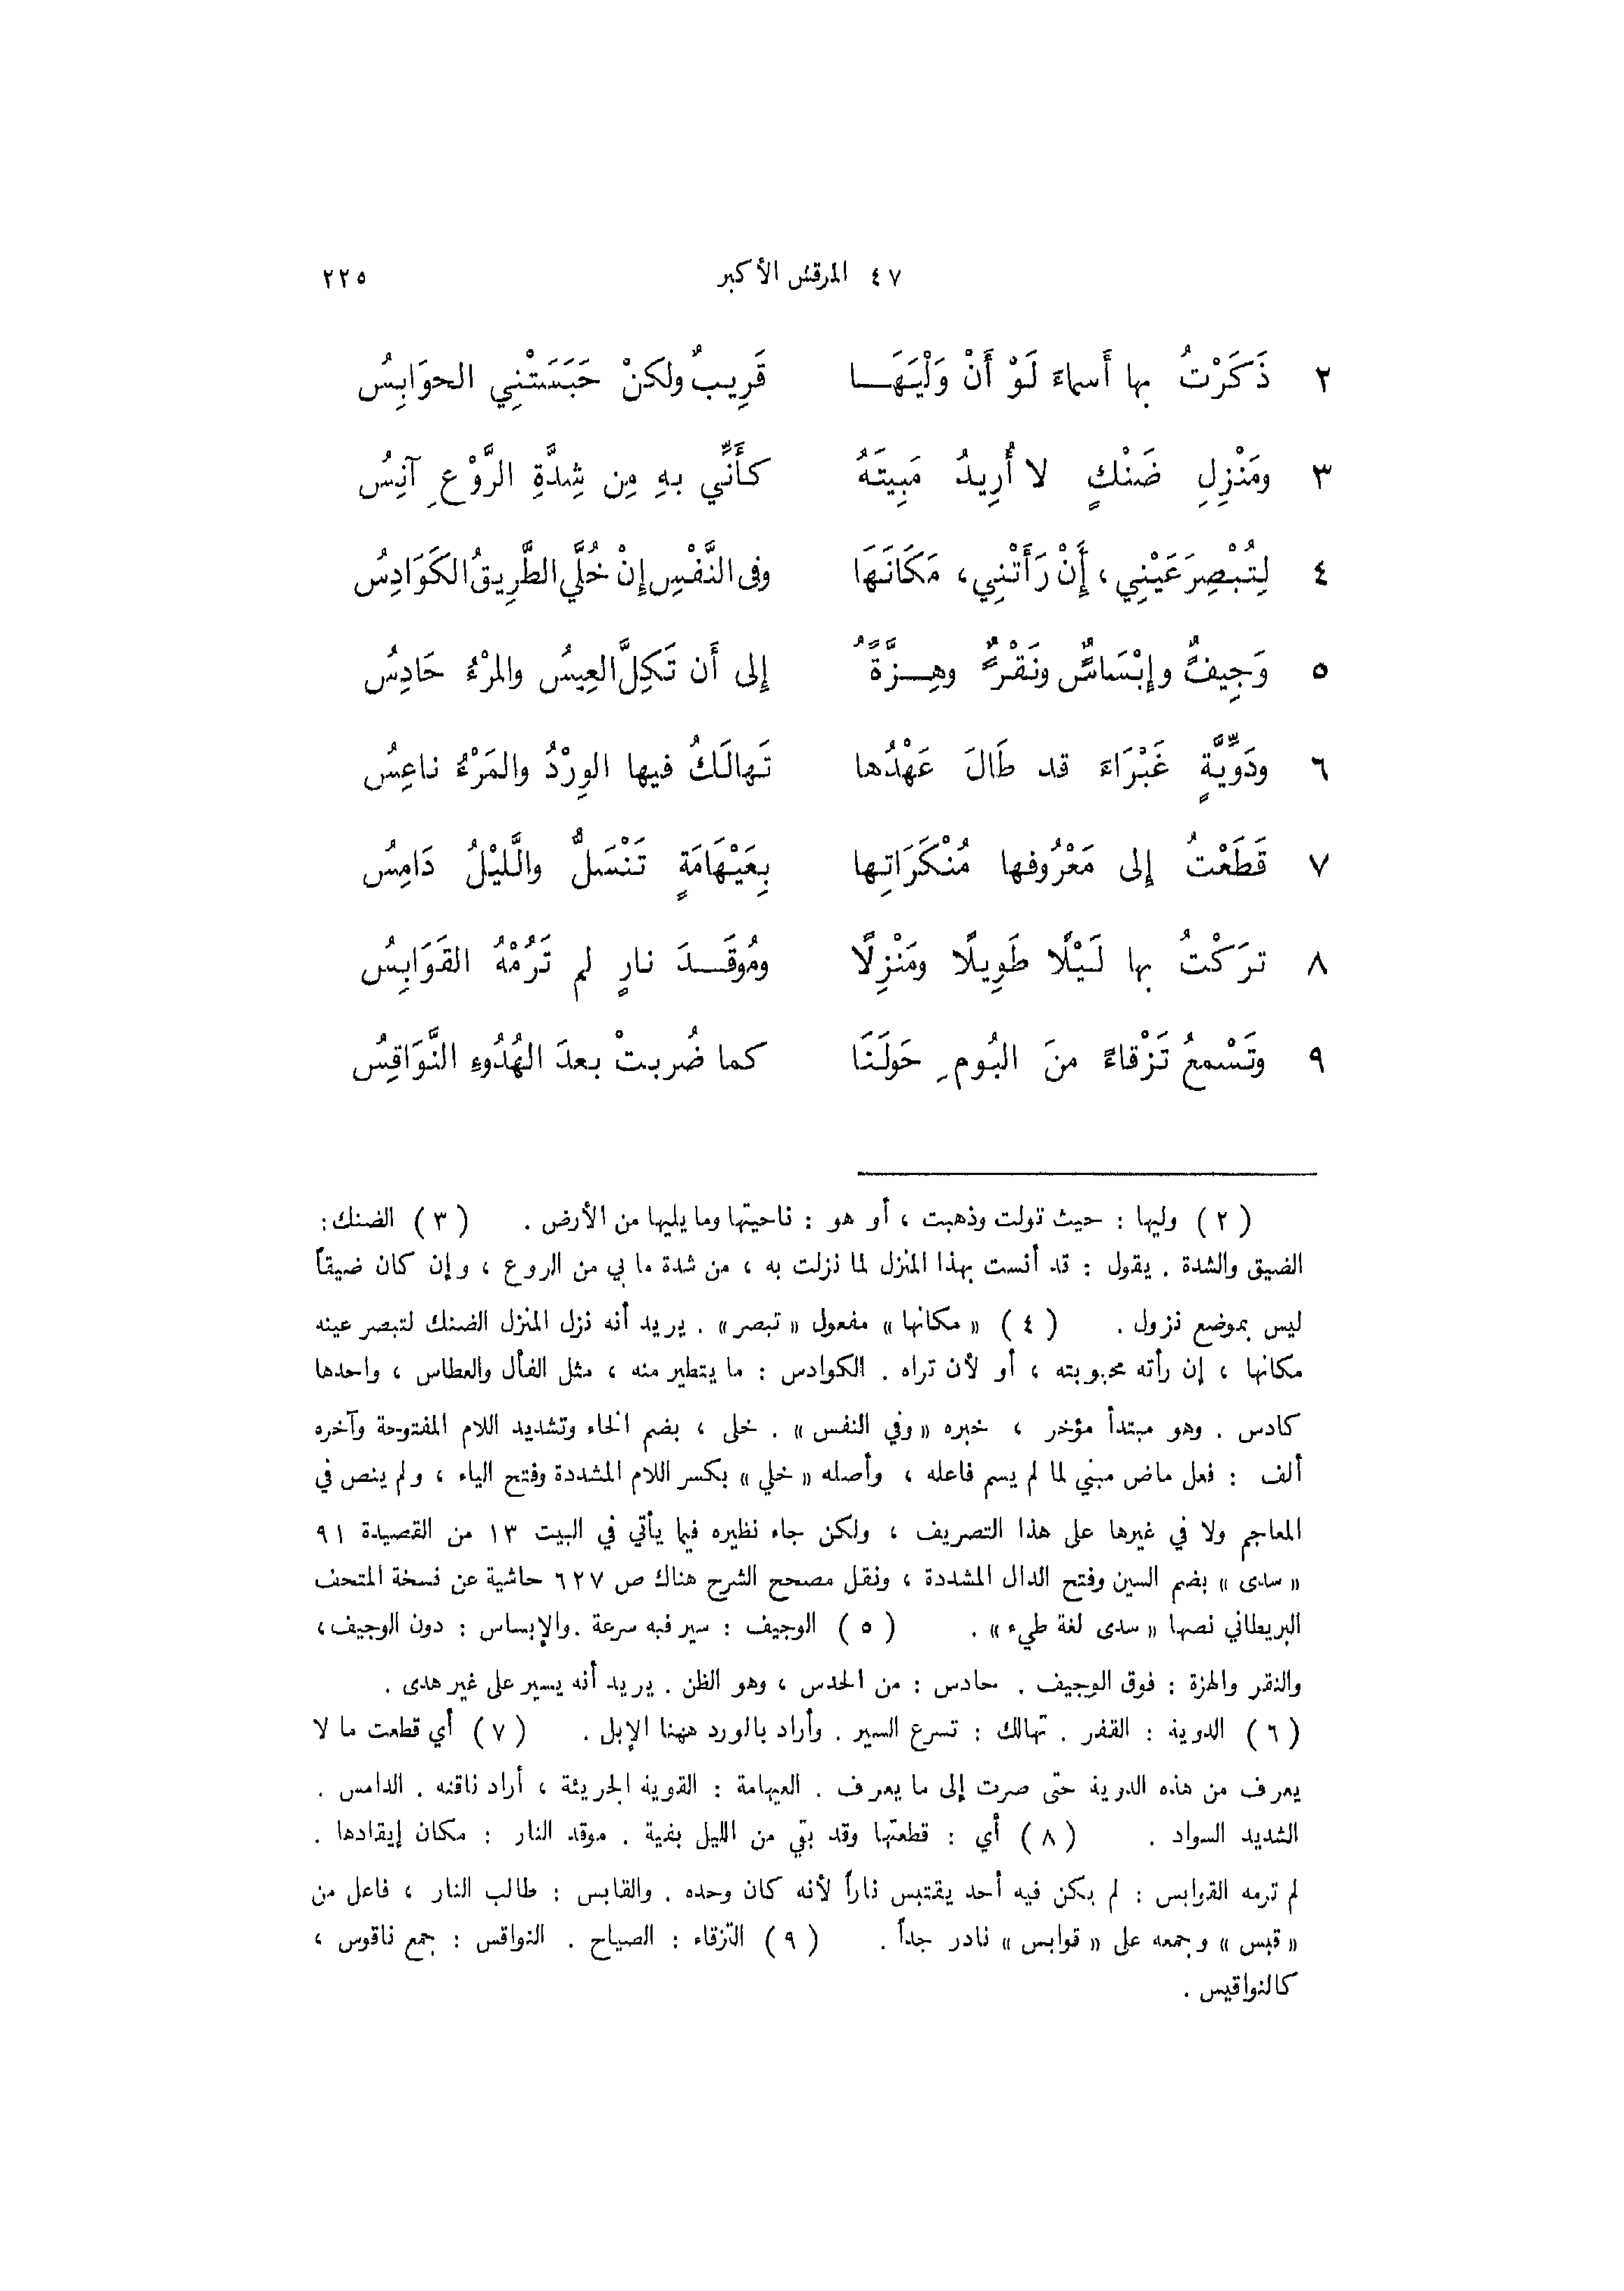 ٤٧ المرقش الأكبر ٢٢٥
٢ ذَكَرْتُ بها أَسماءَ لَوْ أَنَّ وَلْيَهَــا قَرِيبٌ ولكنْ حَبَسَتْنِي الحوَابِسُ
٣ ومَنْزِلِ ضَنْكٍ لا أُرِيدُ مَبِيتَهُ كأَنِّي بهِ مِن شِدَّةِ الرَّوْعِ آنِسُ
٤ لِتُبْصِرَ عَيْنِي، إِنْ رَأَتْنِي، مَكَانَهَا وفى النَّفْسِ إِنْ خُلَّي الطَّرِيقُ الكَوَادِسُ
٥ وَجِيفٌ وإِبْسَاسٌ ونَقْرٌ وهِــزَّةٌ إِلى أَن تَكِلَّ العِيسُ والمرْءُ حَادِسُ
٦ ودَوِّيَّةٍ غَبْرَاءَ قد طَالَ عَهْدُها تَهالَكُ فيها الوِرْدُ والمَرْءُ ناعِسُ
٧ قَطَعْتُ إِلى مَعْرُوفها مُنْكَرَاتِها بِعَيْهَامَةٍ تَنْسَلُّ والَّليْلُ دَامِسُ
٨ ترَكْتُ بها لَيْلًا طَوِيلًا ومَنْزِلًا ومُوقَــدَ نارٍ لم تَرُمْهُ القَوَابِسُ
٩ وتَسْمعُ تَزْقاءً منَ البُومِ حَولَنَا كما ضُربتْ بعدَ الهُدُوءِ النَّوَاقِسُ
(٢) وليها : حيث تولت وذهبت ، أو هو : ناحيتها وما يليها من الأرض . (٣) الضنك:
الضيق والشدة . يقول : قد أنست بهذا المنزل لما نزلت به ، من شدة ما بي من الروع ، وإن كان ضيقاً
ليس بموضع نزول . (٤) «مكانها» مفعول «تبصر» . يريد أنه نزل المنزل الضنك لتبصر عينه
مكانها ، إن رأته محبوبته ، أو لأن تراه . الكوادس : ما يتطير منه ، مثل الفأل والعطاس ، واحدها
كادس . وهو مبتدأ مؤخر ، خبره «وفي النفس» . خلى ، بضم الخاء وتشديد اللام المفتوحة وآخره
ألف : فعل ماض مبني لما لم يسم فاعله ، وأصله «خلي» بكسر اللام المشددة وفتح الياء ، ولم ينص في
المعاجم ولا في غيرها على هذا التصريف ، ولكن جاء نظيره فيما يأتي في البيت ١٣ من القصيدة ٩١
«سدى» بضم السين وفتح الدال المشددة ، ونقل مصحح الشرح هناك ص ٦٢٧ حاشية عن نسخة المتحف
البريطاني نصها «سدى لغة طيء» . (٥) الوجيف : سير فيه سرعة . والإبساس : دون الوجيف،
والنقر والهزة : فوق الوجيف . حادس : من الحدس ، وهو الظن . يريد أنه يسير على غير هدى .
(٦) الدوية : القفر . تهالك : تسرع السير . وأراد بالورد ههنا الإبل . (٧) أي قطعت ما لا
يعرف من هذه الدوية حتى صرت إلى ما يعرف . العيهامة : القوية الجريئة ، أراد ناقته . الدامس .
الشديد السواد . (٨) أي : قطعتها وقد بقي من الليل بقية . موقد النار : مكان إيقادها .
لم ترمه القوابس : لم يكن فيه أحد يقتبس ناراً لأنه كان وحده . والقابس : طالب النار ، فاعل من
«قبس» وجمعه على «قوابس» نادر جداً . (٩) التزقاء : الصياح . النواقس : جمع ناقوس ،
كالنواقيس .